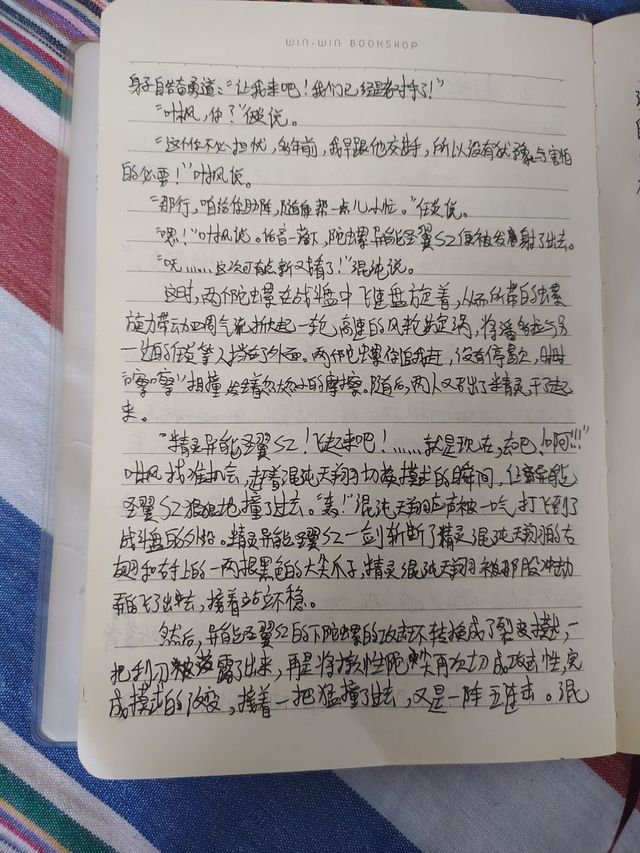 WIN-WIN BOOKSHOP
身子自告奋勇道:"让我来吧!我们已经是老对手了!"
"叶枫,你?"任炎说。
"这个你不必担忧,多年前,我早跟他交过手,所以没有犹豫与害怕
的必要!"叶枫说。
"那行,咱给你助阵,随便帮一点儿小忙。"任炎说。
"嗯!"叶枫说。话音一落下,陀螺异能圣翼S2便被发射了出去。
"呒……这次可有点新又错了!"混沌说。
这时,两个陀螺在战斗盘中飞速盘旋着,从而所带的陀螺
旋力带动四周气流掀起一轮高速的风轮旋涡,将站在另
一边的任炎等人挡在了外面。两个陀螺你追我赶,没有停息,时时
"嘭嘭"相撞发生着大大小小的摩擦。随后,两人又召出了半精灵干了起
来。
"精灵异能圣翼S2!飞起来吧!……就是现在,去吧!啊!!!"
叶枫找准机会,趁着混沌天翔切换模式的瞬间,让异能
圣翼S2狠狠地撞了过去。"轰!"混沌天翔应声被一气打飞到了
战斗盘的外沿。精灵异能圣翼S2一剑斩断了精灵混沌天翔的右
翅和右手上的一两根黑色的大尖爪子,精灵混沌天翔被那股冲劲
飞了出去,接着站立不稳。
然后,异能圣翼S2的下陀螺的攻击环转换成了裂变模式,一
把利刀露了出来,再是将软性陀尖再次切成攻击性,完
成模式的改变,接着一把猛撞了过去,又是一阵五连击。混